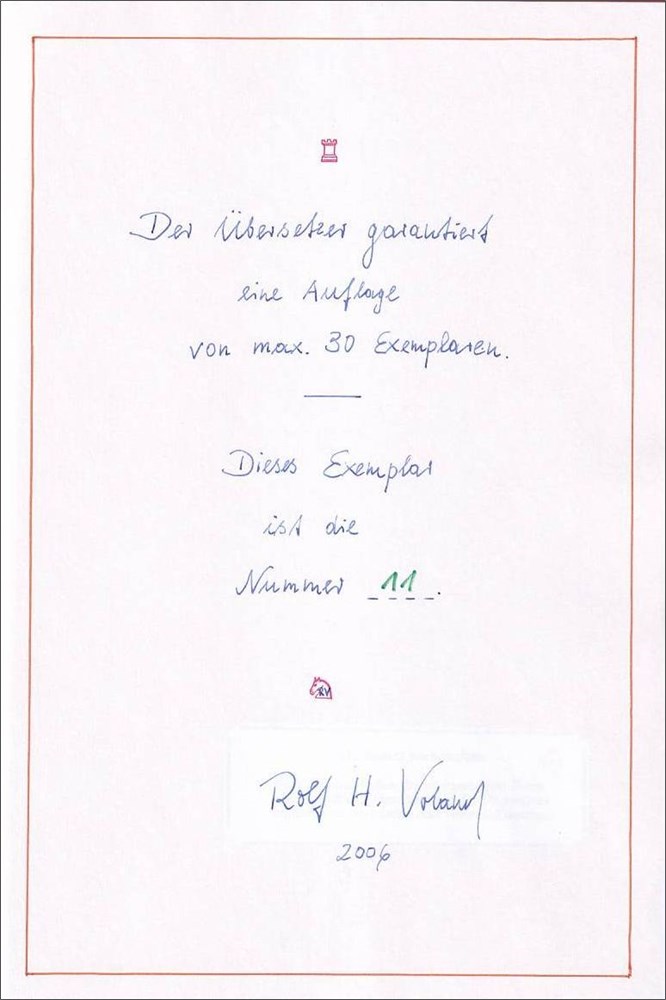 Der Übersetzer garantiert
eine Auflage
von max. 30 Exemplaren.
Dieses Exemplar
ist die
Nummer 11.
RV
Rolf H. Voland
2006